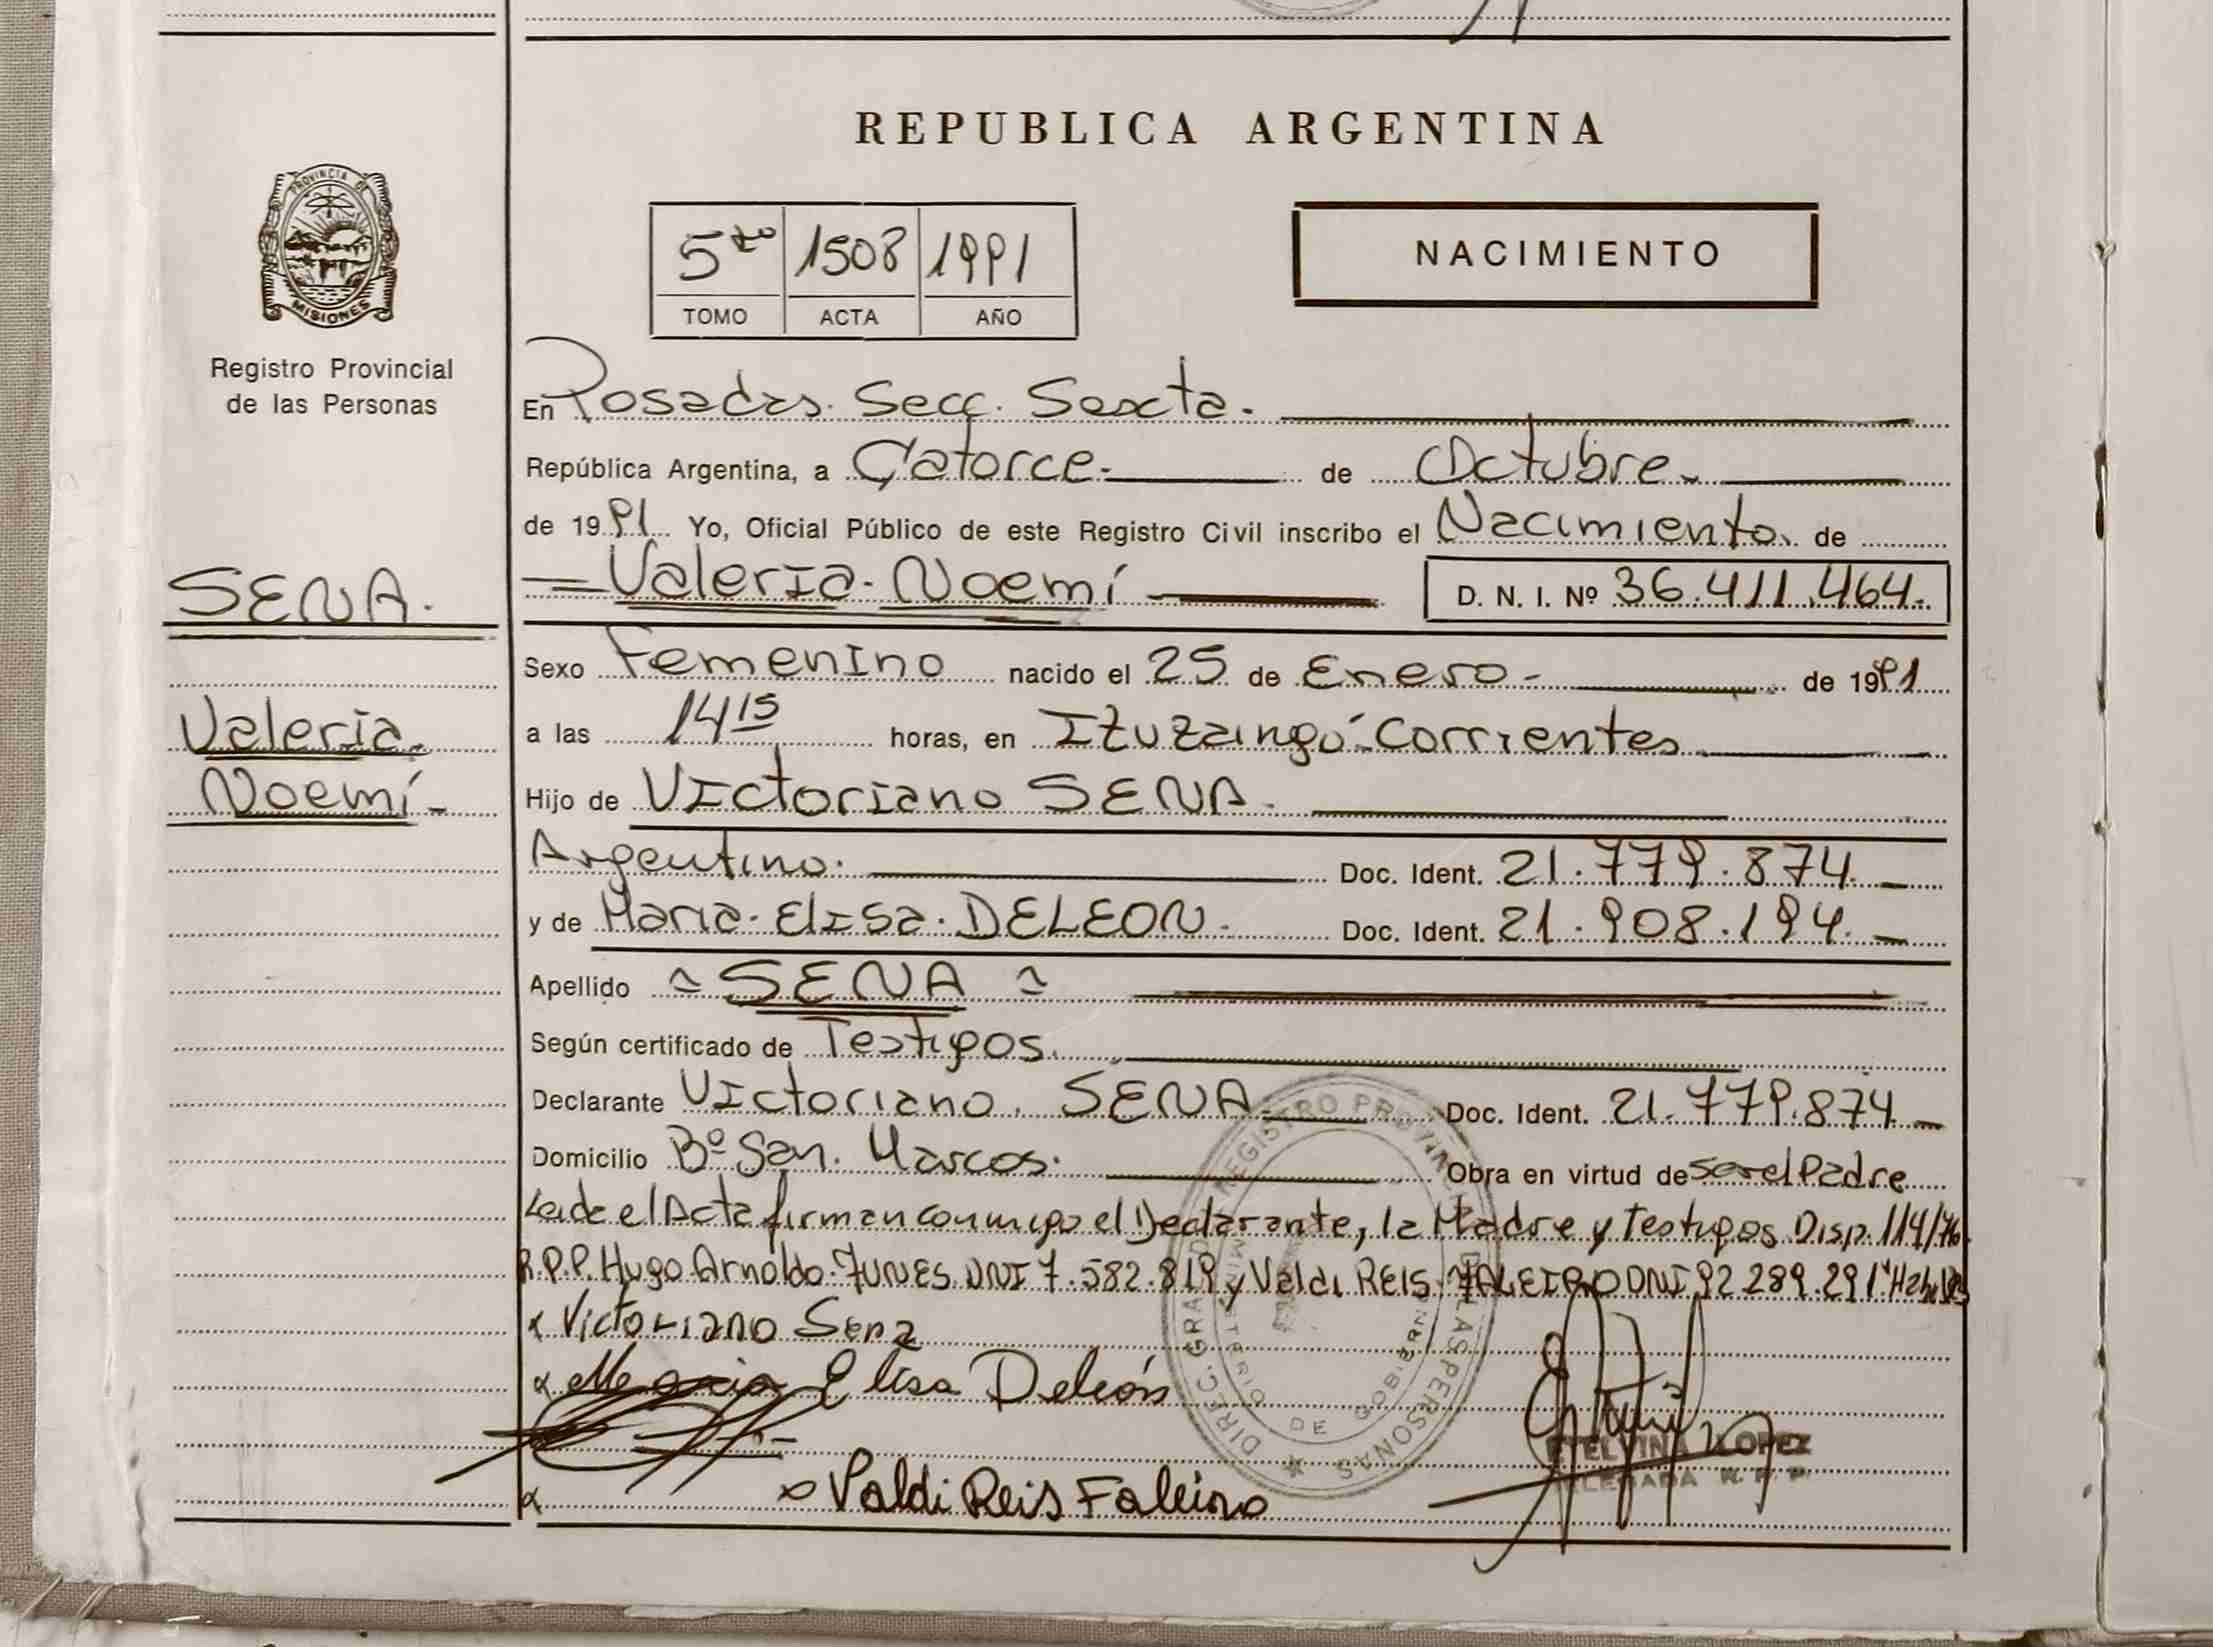 REPUBLICA ARGENTINA
PROVINCIA DE
MISIONES
Registro Provincial
de las Personas
5to 1508 1991
TOMO ACTA AÑO
NACIMIENTO
En Posadas. Secc. Sexta.
República Argentina, a Catorce. de Octubre.
de 1991 Yo, Oficial Público de este Registro Civil inscribo el Nacimiento. de
Valeria. Noemí D. N. I. Nº 36.411.464.
SENA.
Valeria.
Noemí
Sexo Femenino nacido el 25 de Enero de 1991
a las 14 15 horas, en Ituzaingó Corrientes
Hijo de Victoriano SENA.
Argentino. Doc. Ident. 21.779.874.
y de Maria. Elisa. DELEON. Doc. Ident. 21.908.194.
Apellido SENA
Según certificado de Testigos.
Declarante Victoriano. SENA Doc. Ident. 21.779.874
Domicilio Bº San. Marcos. Obra en virtud de ser el Padre
Leida el Acta firman conmigo el Declarante, la Madre y Testigos. Disp. 114/76
R.P.P. Hugo Arnoldo. FUNES. DNI 7.582.819 y Valdi REIS. FALEIRO DNI 92.289.291
x Victoriano Sena
x Maria Elisa Deleón
x
x Valdi Reis Faleiro
DIREC. GRAL. REGISTRO PROVINCIAL DE LAS PERSONAS
MINISTERIO DE GOBIERNO
ETELVINA LOPEZ
DELEGADA R. P. P.